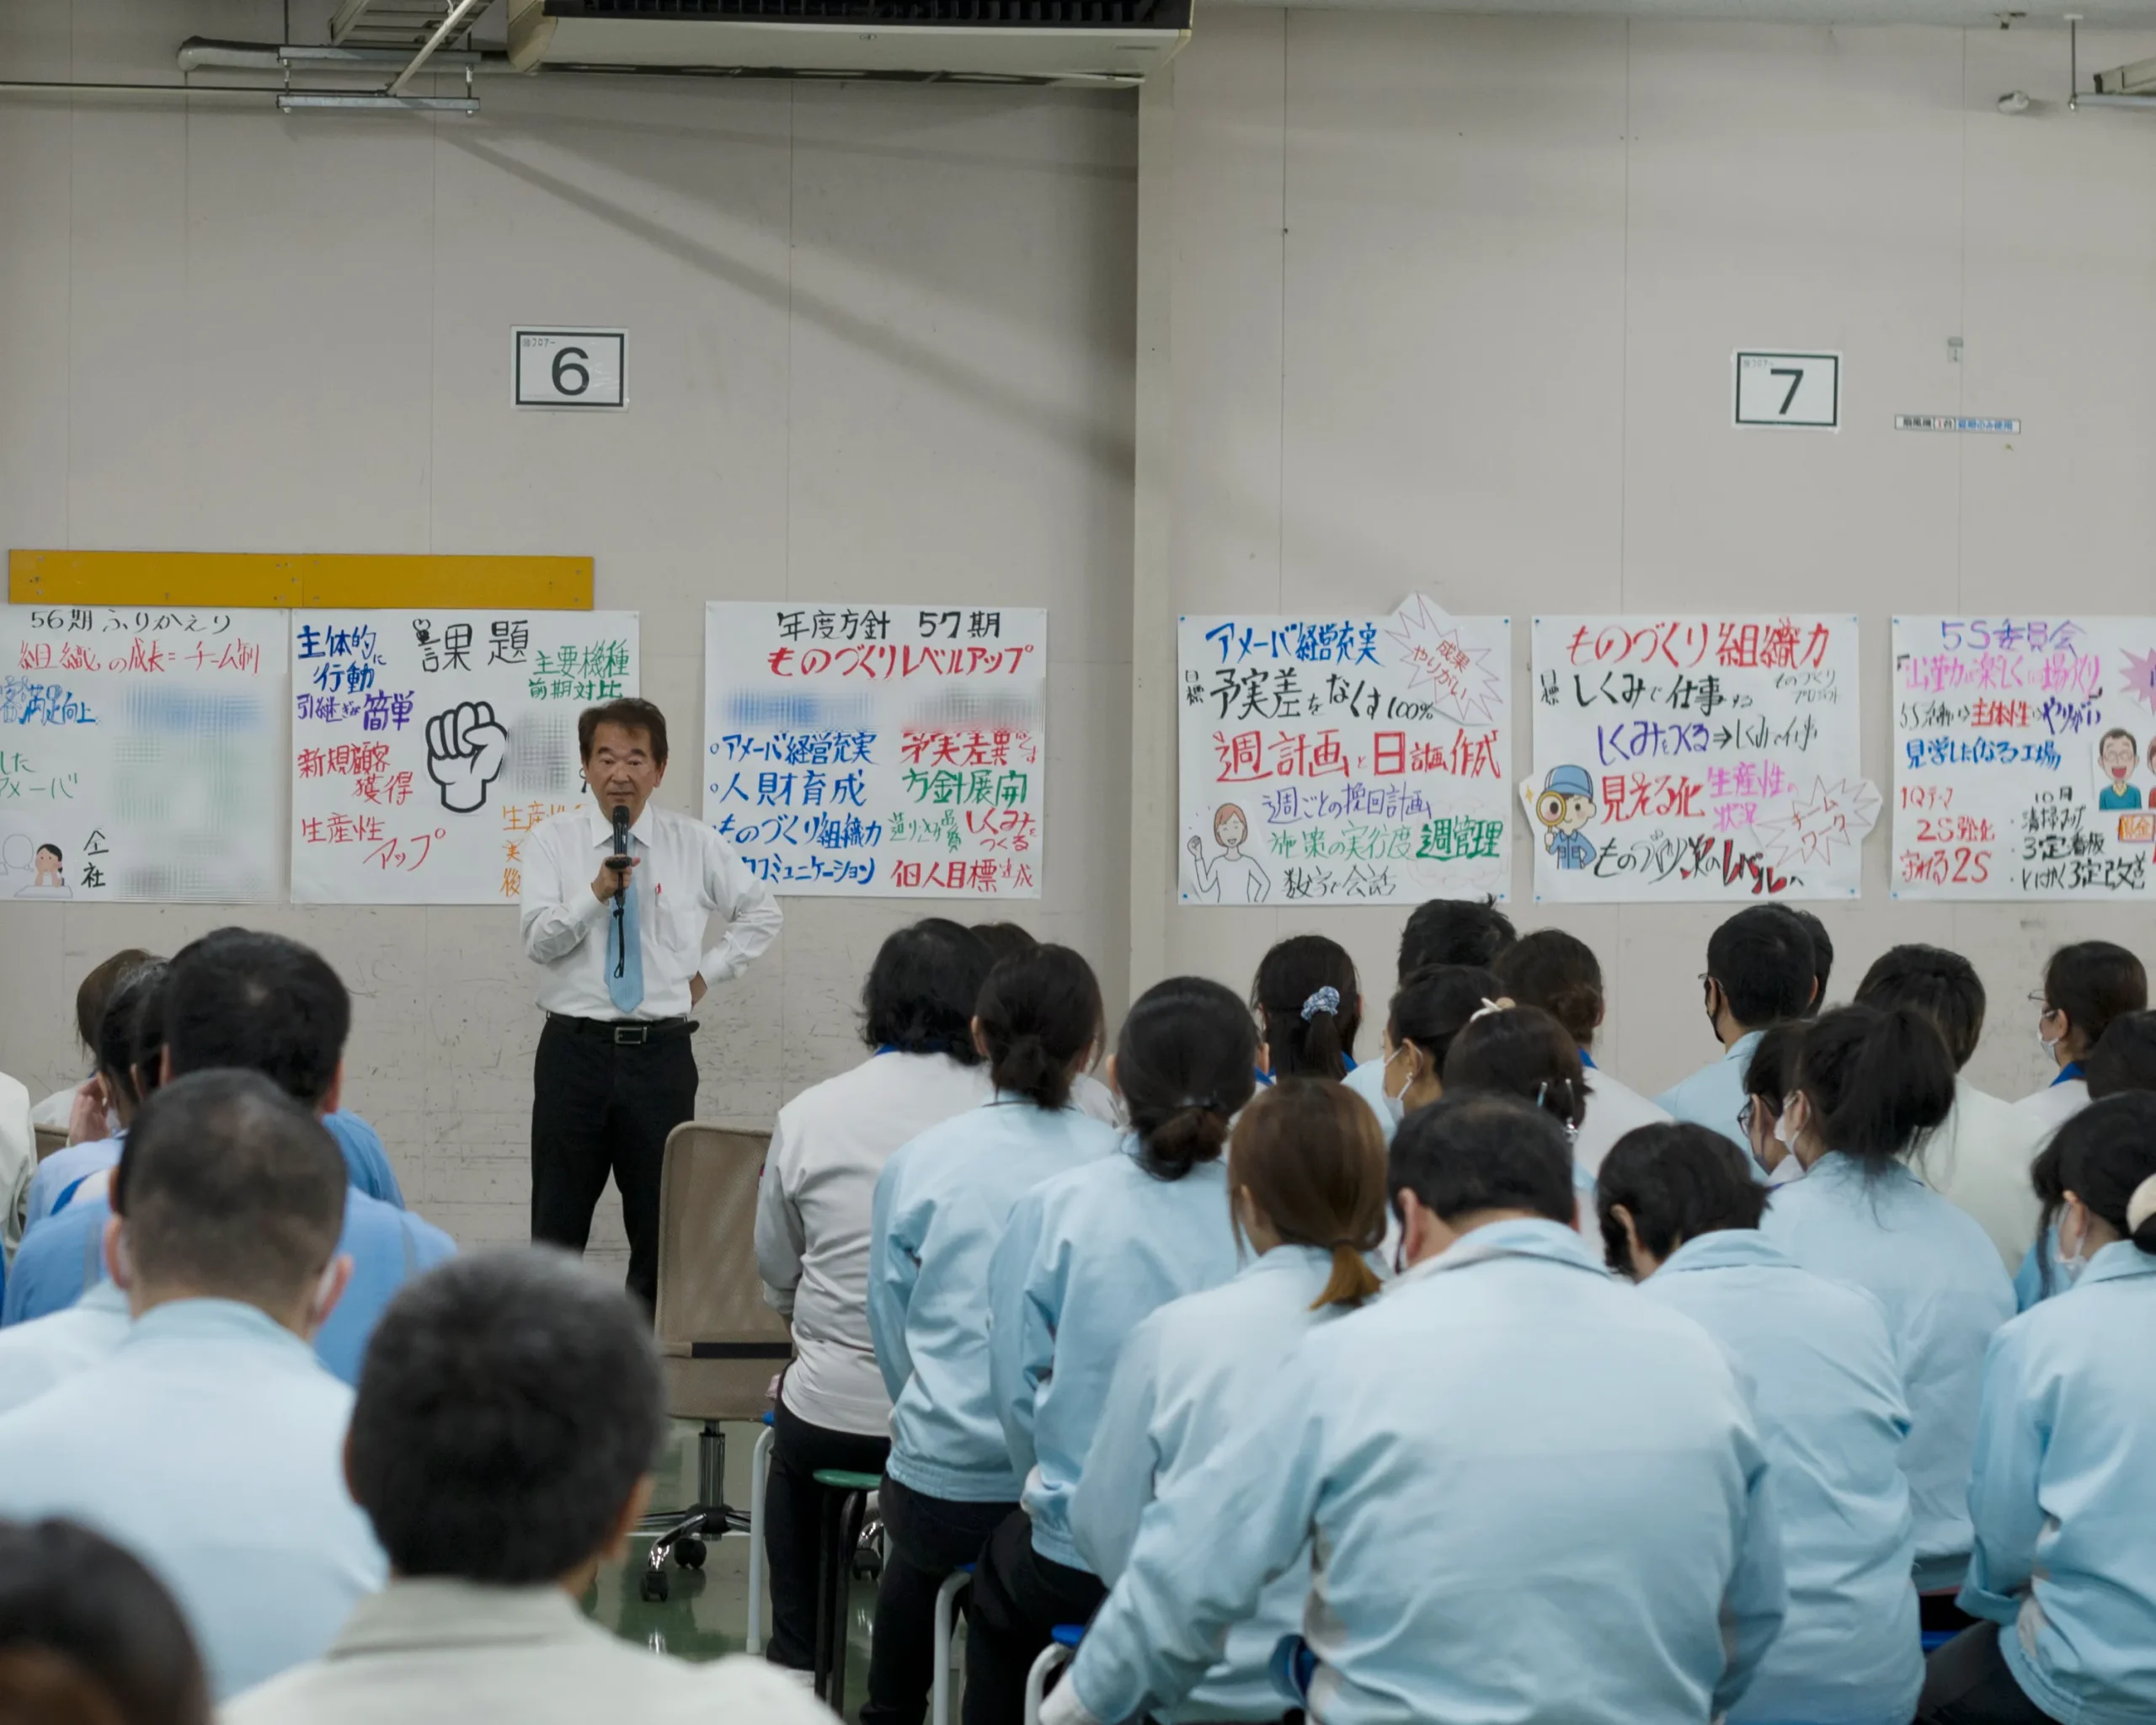 6
7
56期 ふりかえり
組織の成長=チーム制
満足向上
した
アメーバ
全社
課題
主体的に
行動
引継ぎが簡単
新規顧客
獲得
生産性
アップ
主要機種
前期対比
生産性
年度方針 57期
ものづくりレベルアップ
アメーバ経営充実
人財育成
ものづくり組織力
コミュニケーション
予実差異
方針展開
しくみを
つくる
個人目標達成
アメーバ経営充実
成果
やりがい
目標 予実差をなくす100%
週計画と日計画作成
週ごとの挽回計画
施策の実行度 週管理
数字で会話
ものづくり組織力
目標 しくみで仕事する
ものづくり
プロジェクト
しくみをつくる⇒しくみで仕事
見える化 生産性の
状況
チーム
ワーク
ものづくり次のレベルへ
5S委員会
主体性 やりがい
見学したくなる工場
1Qテーマ
2S強化
守れる2S
10月
・清掃マップ
・3定看板
3定改善